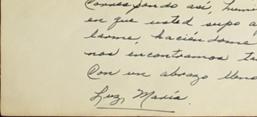 Correspondo así, humi
en que usted supo a
larme, haciéndome
nos encontramos tr
Con un abrazo lleno
Luz María.